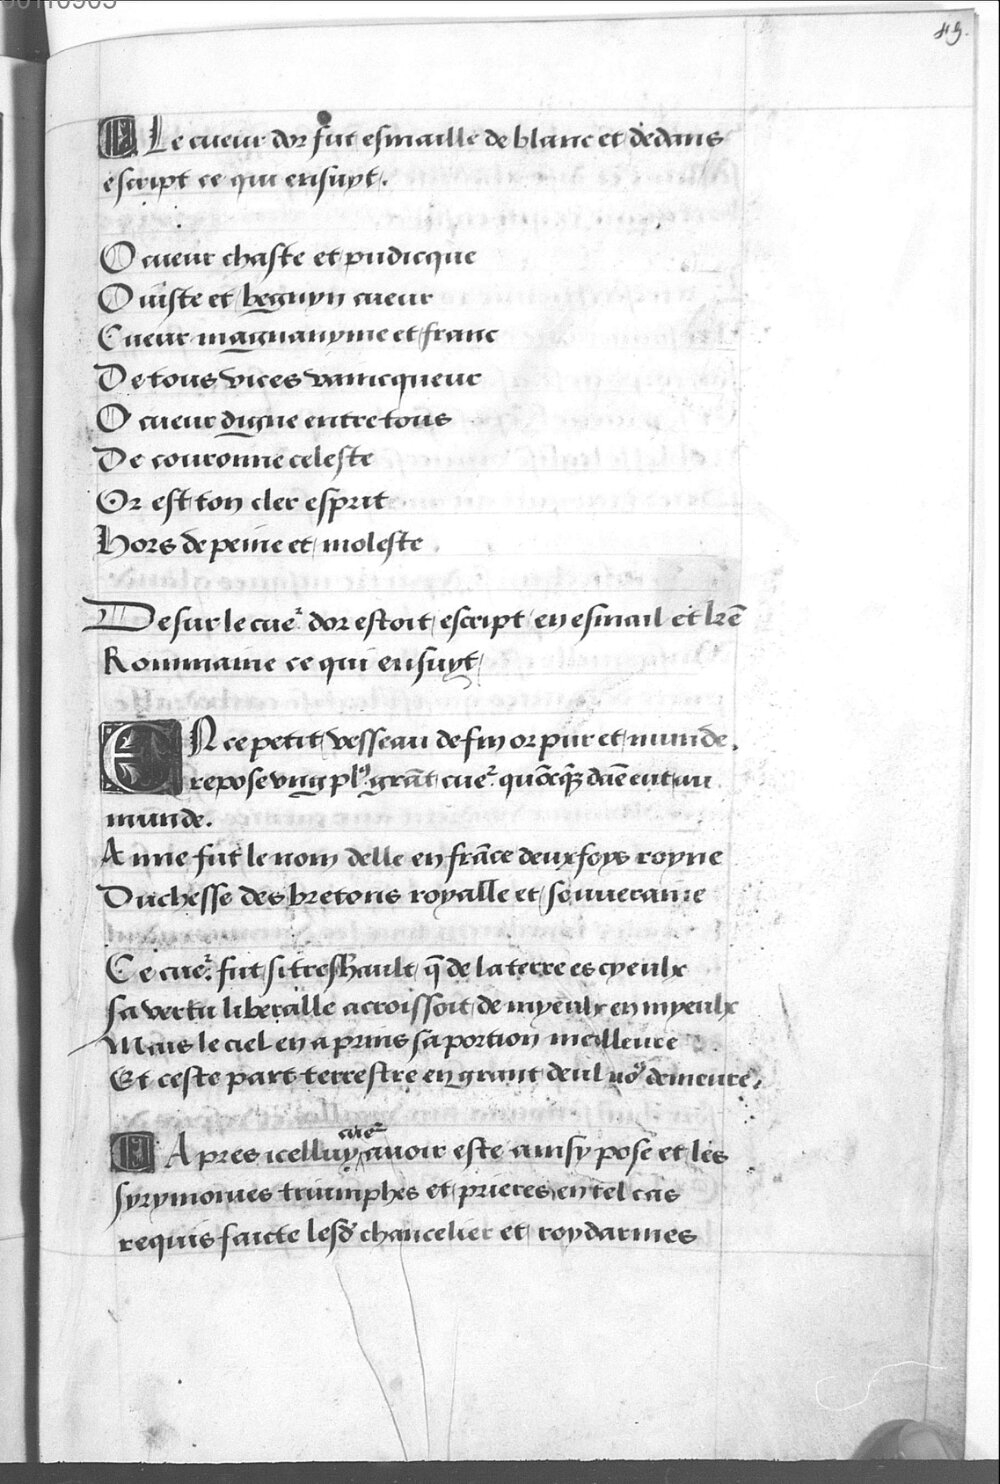 49.
Le cueur dor fut esmaille de blanc et dedans
escript ce qui ensuyt.
O cueur chaste et pudicque
O iuste et beguyn cueur
Cueur magnanyme et franc
De tous vices vaincqueur
O cueur digne entre tous
De couronne celeste
Or est ton cler esprit
Hors de peine et moleste
De sur le cuer dor estoit escript en esmail et lre
Rommaine ce qui ensuyt
EN ce petit vesseau de fin or pur et munde.
repose vng pl9 grāt cuer quōcq̄s dāe eut au
munde.
Anne fut le nom delle en frāce deux foys royne
Duchesse des bretons royalle et souueraine
Ce cuer fut si tres hault q̄ de la terre es cyeulx
sa vertu liberalle acroissoit de myeulx en myeulx
Mais le ciel en a prins sa portion meilleure
Et ceste part terrestre en grant deul no9 demeure.
Apres icelluy cuer auoir este ainsy pose et les
syrymonies triumphes et prieres en tel cas
requis faicte lesd chancelier et roy darmes